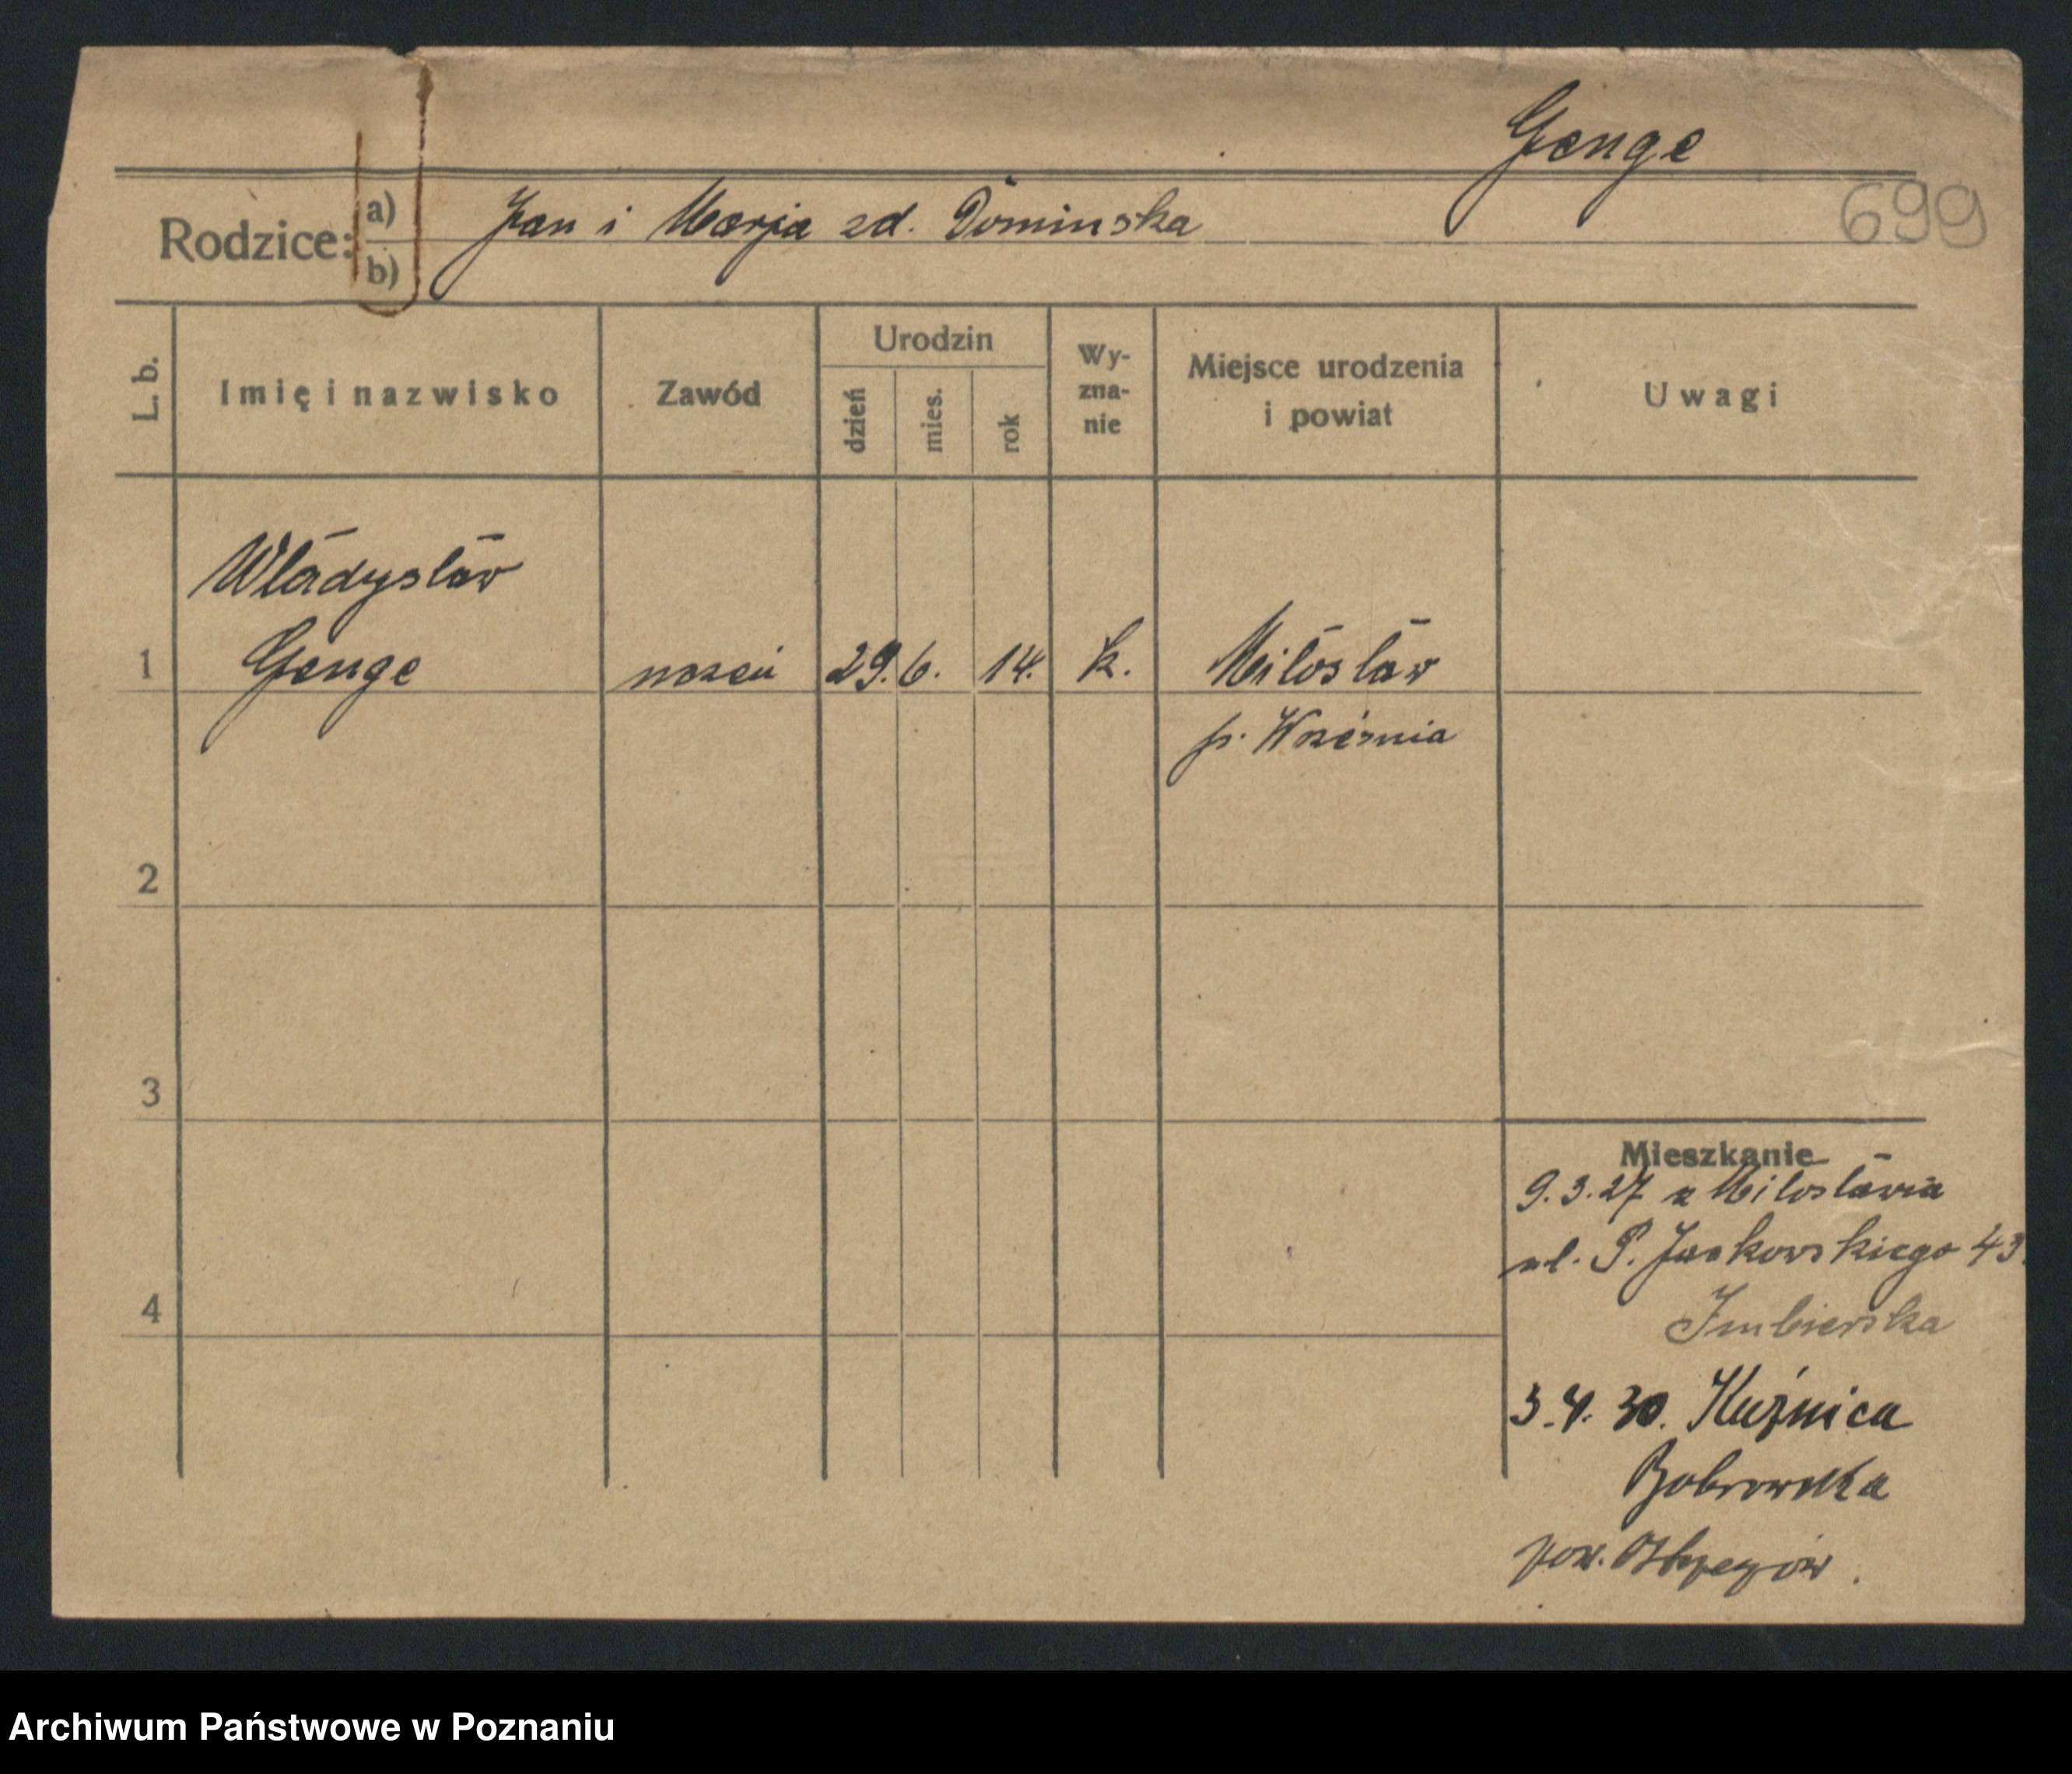 Genge
699
Rodzice: a) Jan i Marja zd. Domińska
b)
L. b.
Imię i nazwisko
Zawód
Urodzin
dzień
mies.
rok
Wy-
zna-
nie
Miejsce urodzenia
i powiat
Uwagi
Władysław
1 Genge uczeń 29. 6. 14. k. Miłosław
p. Września
2
3
4
Mieszkanie
9.3.27 z Miłosławia
ul. P. Jackowskiego 43.
Imbierska
3.4.30. Kuźnica
Bobrowska
pow. Ostrzeszów.
Archiwum Państwowe w Poznaniu